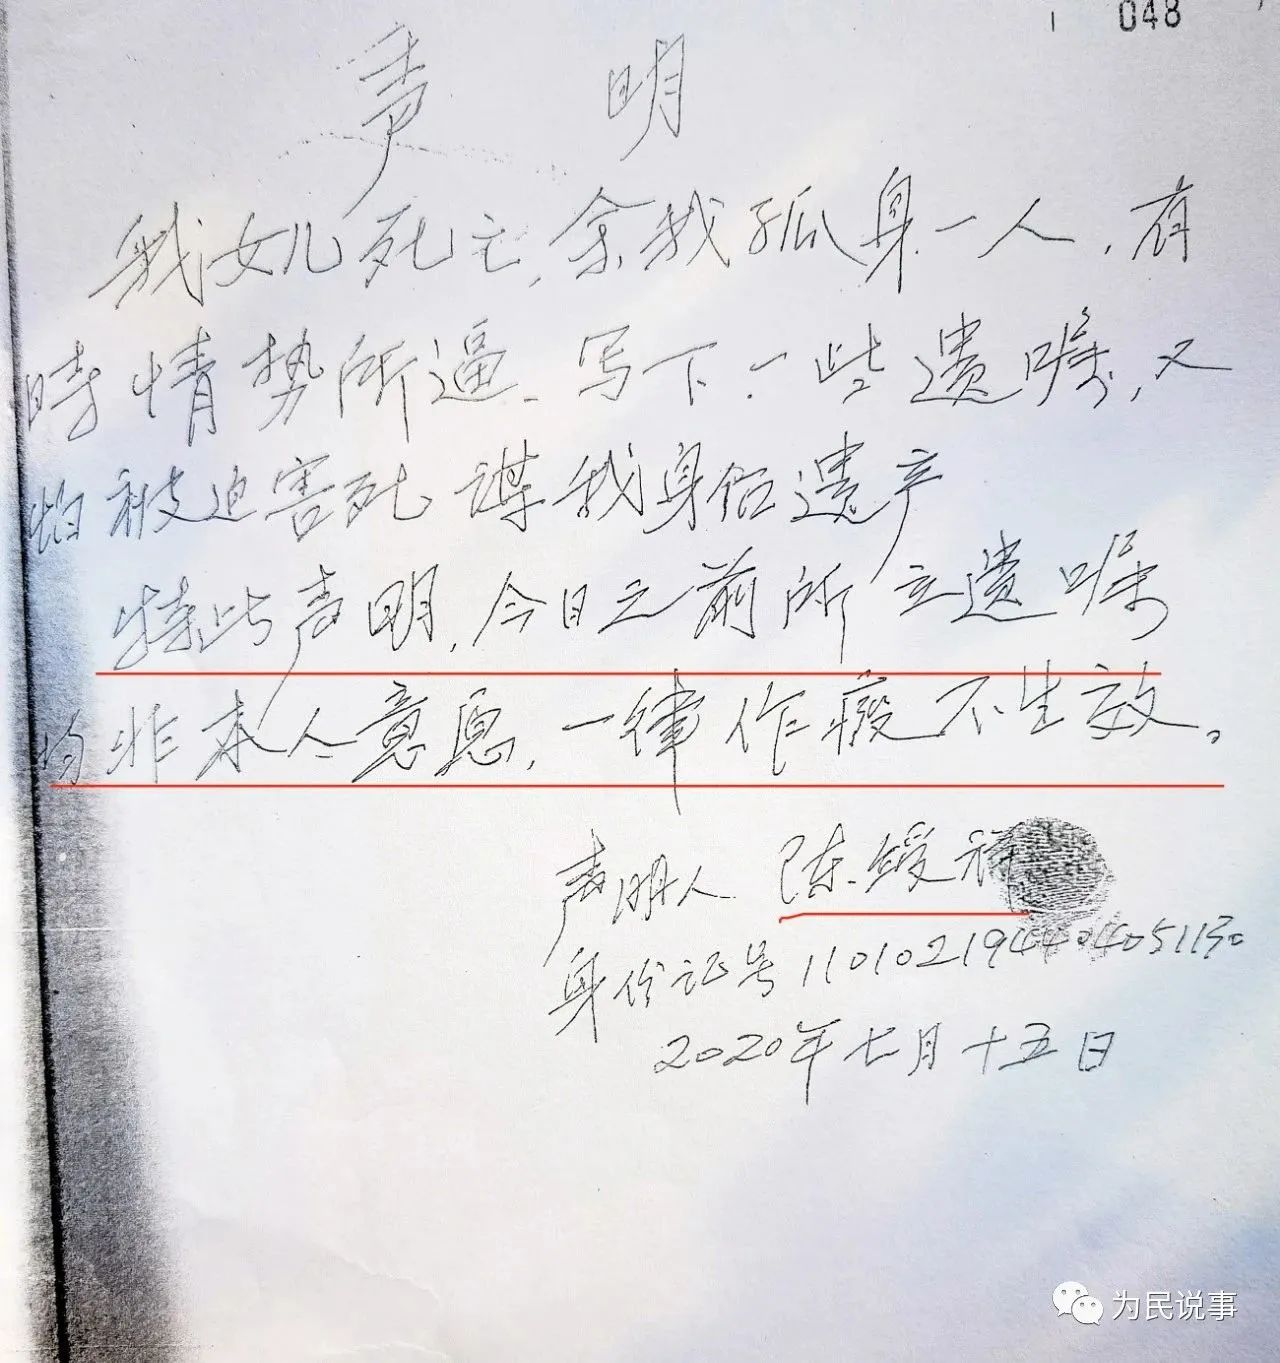 048
声明
我女儿死亡,余我孤身一人,有
时情势所逼、写下一些遗嘱,又
怕被迫害死谋我身后遗产
特此声明,今日之前所立遗嘱
均非本人意愿,一律作废不生效。
声明人 陈绶祥
身份证号
2020年七月十五日
为民说事